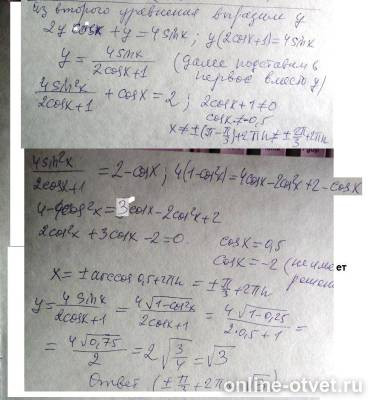 из второго уравнения выразим y
2y cosx + y = 4 sinx ; y(2cosx+1)=4sinx
y = 4sinx / 2cosx+1 (далее подставим в первое вместо y)
4sin²x / 2cosx+1 + cosx = 2 ; 2cosx+1≠0
cosx≠-0,5
x≠±(π-π/3)+2πn≠±2π/3+2πn
4sin²x / 2cosx+1 = 2-cosx ; 4(1-cos²x)=4cosx-2cos²x+2-cosx
4-4cos²x=3cosx-2cos²x+2
2cos²x+3cosx-2=0. cosx=0,5
cosx=-2 (не имеет решен
x=±arccos0,5+2πn=±π/3+2πn
y = 4sinx / 2cosx+1 = 4√1-cos²x / 2cosx+1 = 4√1-0,25 / 2·0,5+1 =
= 4√0,75 / 2 = 2√3/4 = √3
Ответ (±π/3+2π
online-otvet.ru